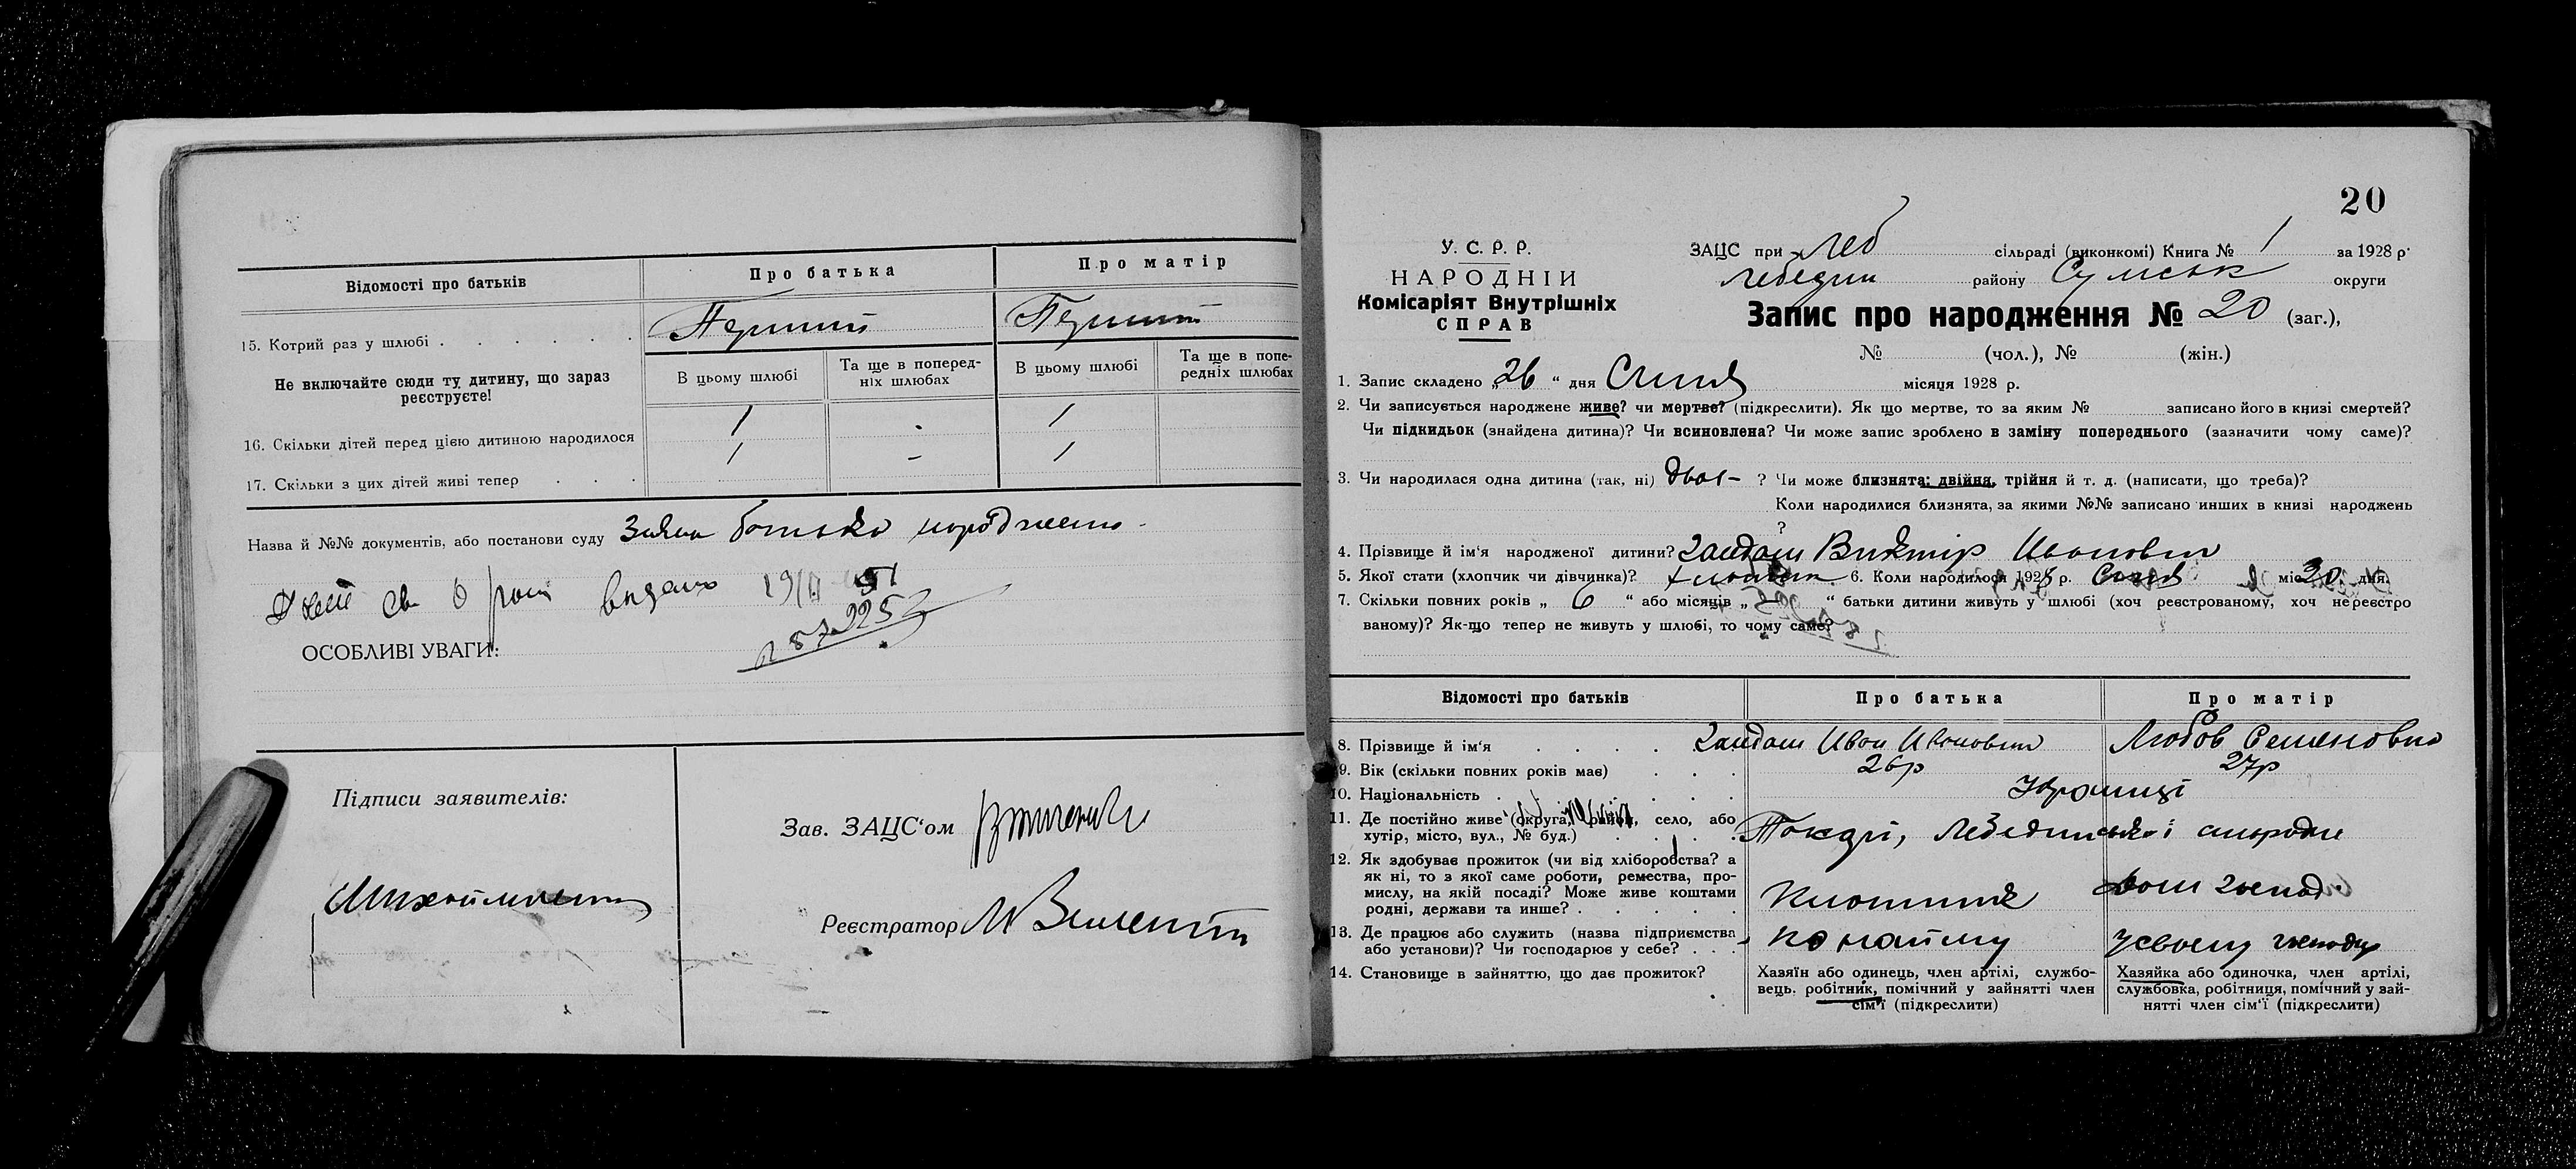 Відомості про батьків
Про батька
Про матір
15. Котрий раз у шлюбі . . . . . .
Перший
Перший
Не включайте сюди ту дитину, що зараз реєструєте!
В цьому шлюбі
Та ще в поперед-
ніх шлюбах
В цьому шлюбі
Та ще в попе-
редніх шлюбах
16. Скільки дітей перед цією дитиною народилося
1
-
1
17. Скільки з цих дітей живі тепер . . .
1
-
1
Назва й №№ документів, або постанови суду Заява батька
видано
ОСОБЛИВІ УВАГИ:
Підписи заявителів:
Зав. ЗАЦС'ом
Реєстратор
20
У. С. Р. Р.
НАРОДНІЙ
Комісаріят Внутрішніх
СПРАВ
ЗАЦС при Леб сільраді (виконкомі) Книга № 1 за 1928 р.
Лебедин району Сумськ округи
Запис про народження № 20 (заг.),
№ (чол.), № (жін.)
1. Запис складено „26“ дня Січня місяця 1928 р.
2. Чи записується народжене живе? чи мертве? (підкреслити). Як що мертве, то за яким № записано його в книзі смертей?
Чи підкидьок (знайдена дитина)? Чи всиновлена? Чи може запис зроблено в заміну попереднього (зазначити чому саме)?
3. Чи народилася одна дитина (так, ні) двоє ? Чи може близнята: двійня, трійня й т. д. (написати, що треба)?
Коли народилися близнята, за якими №№ записано инших в книзі народжень
?
4. Прізвище й ім'я народженої дитини? Гандаш Виктір Иванович
5. Якої стати (хлопчик чи дівчинка)? хлопчик 6. Коли народилося 1928 р. Січня міс. 20 дня.
7. Скільки повних років „ 6 “ або місяців „ “ батьки дитини живуть у шлюбі (хоч реєстрованому, хоч нереєстро
ваному)? Як-що тепер не живуть у шлюбі, то чому саме?
Відомості про батьків
Про батька
Про матір
8. Прізвище й ім'я . . . .
Гандаш Иван Иванович
Любов Семеновна
9. Вік (скільки повних років має) . . .
26р
27р
10. Національність . . . . . .
Українці
11. Де постійно живе (округа, район, село, або
хутір, місто, вул., № буд.) . . . .
Токарі, Лебединської сільради
12. Як здобуває прожиток (чи від хліборобства? а
як ні, то з якої саме роботи, ремества, про-
мислу, на якій посаді? Може живе коштами
родні, держави та инше? . . . . .
Дом господ.
13. Де працює або служить (назва підприємства
або установи)? Чи господарює у себе? . . .
по найму
У своему господ
14. Становище в зайняттю, що дає прожиток?
Хазяїн або одинець, член артілі, службо-
вець. робітник, помічний у зайнятті член
сім'ї (підкреслити)
Хазяйка або одиночка, член артілі,
службовка, робітниця, помічний у зай-
нятті член сім'ї (підкреслити)